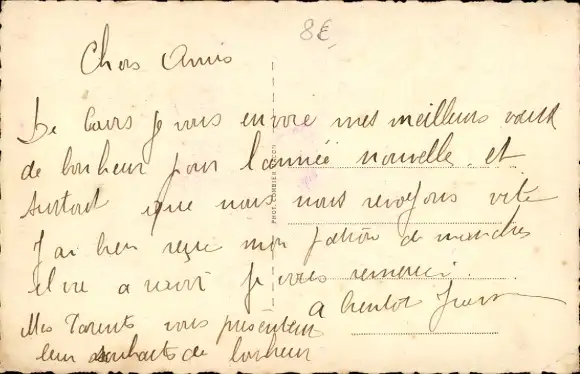 8€
Chers Amis
De Cours je vous envoie mes meilleurs vœux
de bonheur pour l'année nouvelle et
surtout que nous nous revoyons vite
J'ai bien reçu mon de manches
je vous remerci.
A bientot
Mes Parents vous présentent
leur souhaits de bonheur
PHOT. COMBIER MACON